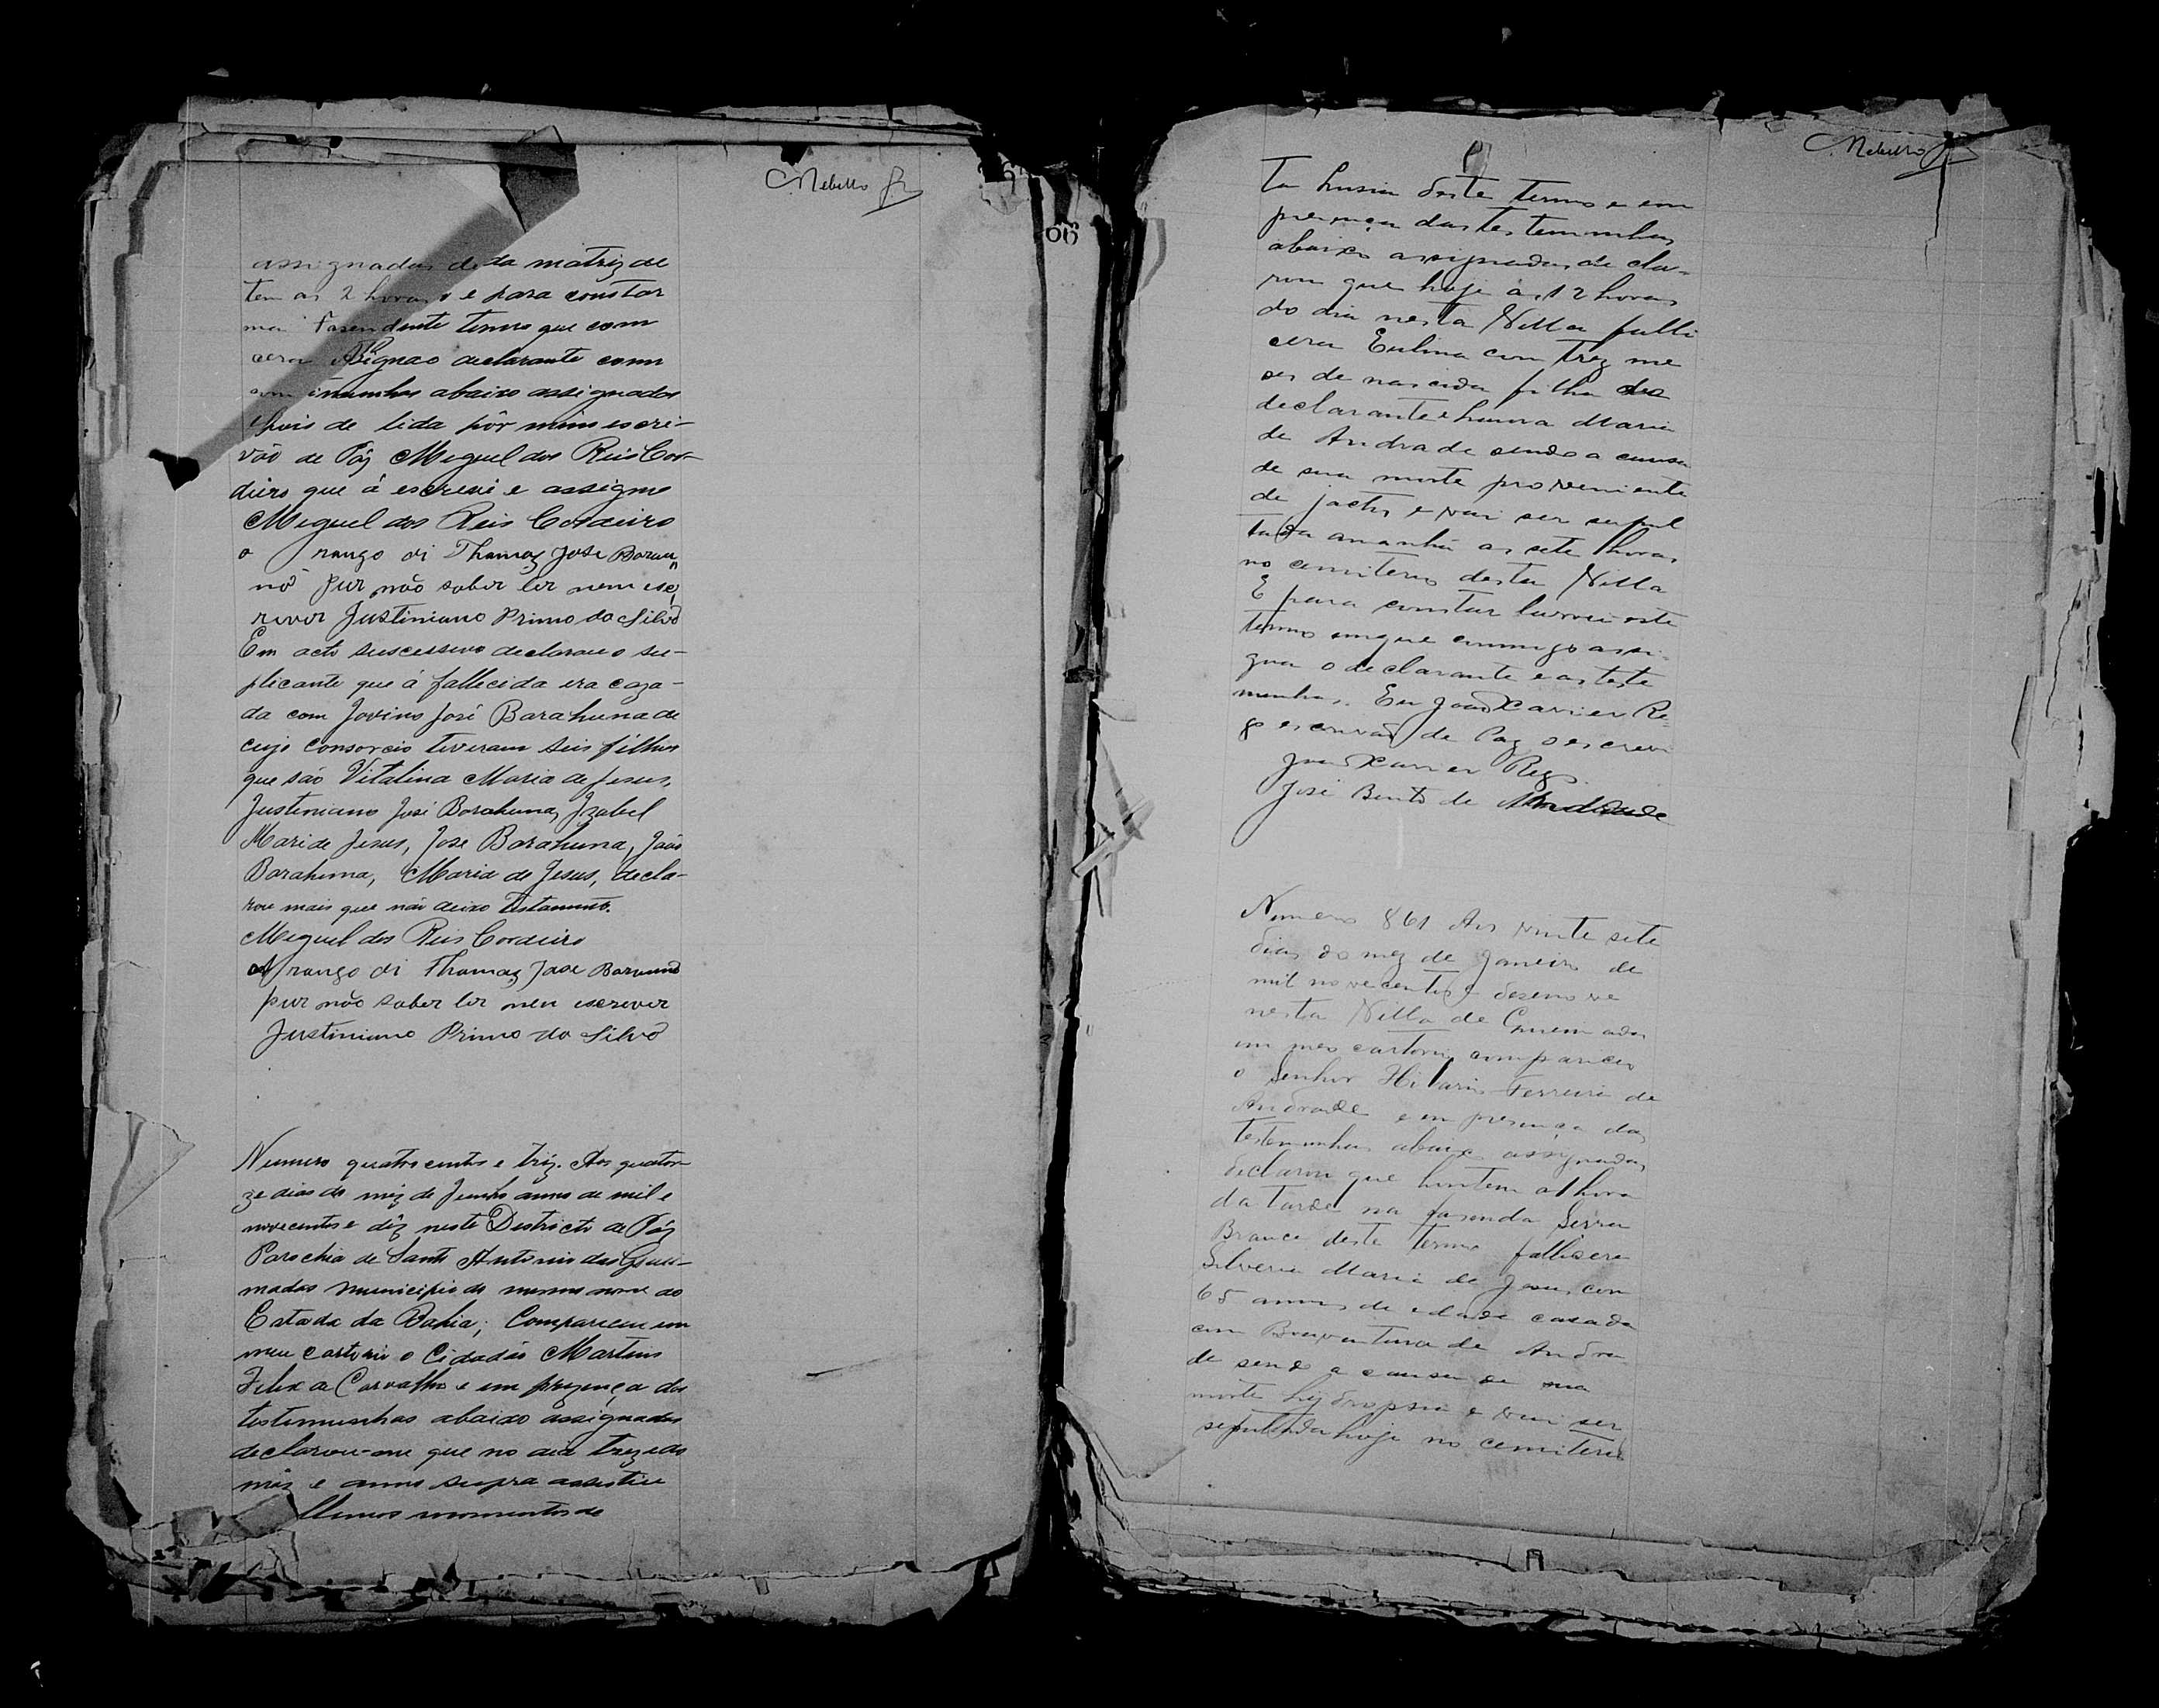 Rebello Jr
66
assignadas da matriz de
tem as 2 horas e para constar
dente termo que com
Asigna o declarante com
munhas abaixo assignadas
depois de lida pôr mim escri-
vão de Páz Miguel dos Reis Cor-
dieiro que á escrevi e assigno
Miguel dos Reis Cordeiro
a rougo di Thomaz Jose Baraú,,
nã pur não saber ler nem esc,
rever Justiniano Primo da Silvã
Em acto suscessivo declarou o su-
plicante que á fallecida era caza-
da com Jovino José Barahuna de
cujo consorcio tiveram seis filhos
que são Vitalina Maria de Jesus,
Justiniano José Barahuna, Izabel
Mari de Jesus, Jose Barahuna, João
Barahuna, Maria de Jesus, decla-
rou mais que não deixo testamento.
Miguel dos Reis Cordeiro
A rougo di Thomaz Jose Baraunã
pur não saber ler nen escrever
Justiniano Primo da Silvã
Numero quatro centos e tríz. Aos quator-
ze dias do mêz de Junho anno de mil e
novecentos e déz neste Districto de Páz
Parochia de Santo Antonio das Quei-
madas municipio do mesmo nome do
Estado da Bahia; Compareceu em
meu cartorio o Cidadão Martins
Felix de Carvalho e em prezença das
testimunhas abaixo assignadas
declarou-me que no dia treze do
mêz e anno supra assistiu
ultimos momentos de
Rebello Jr
ta Lusia deste termo e em
presença das testemunhas
abaixo assignadas de cla-
rou que hoje as 12 horas
do dia nesta Villa falle
cera Eulina com trez me
ses de nascida filha do
declarante e Maria
de Andrade sendo a causa
de sua morte proveniente
de e vai ser sepul
tada amanhã as sete horas
no cemiterio desta Villa
E para constar lavrei este
termo em que commigo assi-
gna o declarante e as teste
munhas. Eu João Xavier Re-
go escrivão de Paz o escrevi
João Xavier Rego.
José Bento de Andrade
Numero 861 Aos vinte sete
dias do mez de Janeiro de
mil novecentos e desenove
nesta Villa de Queimadas
em meo cartorio compareceo
o Senhor Hilario Ferreira de
Andrade e em presença das
testemunhas abaixo assignadas
declarou que hontem a 1 hora
da tarde na fasenda Serra
Branca deste termo fallecera
Silveria Maria de Jesus com
65 annos de edade casada
com Boaventura de Andra
de sendo a causa de sua
morte hydropsia e vai ser
sepultada hoje no cemiterio